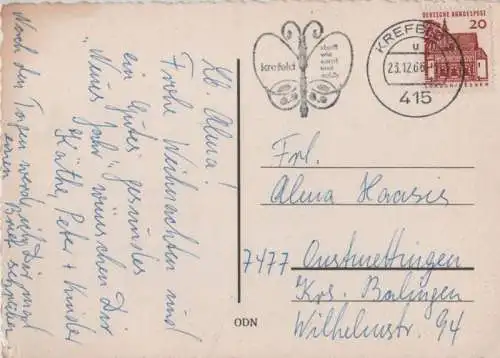 Lb. Alma!
Frohe Weihnachten und
ein Gutes gesundes
"Neues Jahr" wünschen Dir
Käthe, Peter + Kinder
Nach den Tagen werde ich Dir mal
einen Brief schreiben
krefeld
stadt
wie
samt
und
seide
KREFELD
u
23.12.66
415
DEUTSCHE BUNDESPOST
20
Frl.
Alma Haasis
7477 Onstmettingen
Krs. Balingen
Wilhelmstr. 94
ODN